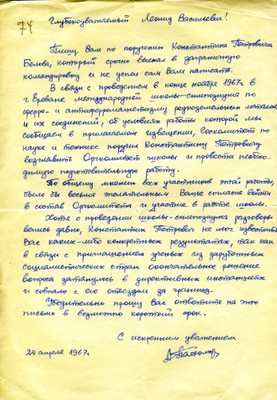 74
Глубокоуважаемый Леонид Васильевич!
Пишу Вам по поручению Константина Петровича
Белова, который срочно выехал в заграничную
командировку и не успел сам Вам написать.
В связи с проведением в конце ноября 1967г. в
г. Ереване международной школы-симпозиума по
ферро- и антиферромагнетизму редкоземельных металлов
и их соединений, об условиях работы которой мы
сообщаем в прилагаемом извещении, Госкомитет по
науке и технике поручил Константину Петровичу
возглавить Оргкомитет школы и провести необхо-
димую подготовительную работу.
По общему мнению всех участников этой работы,
было бы весьма желательным Ваше согласие войти
в состав Оргкомитета и участие в работе школы.
Хотя о проведении школы-симпозиума разговоры
велись давно, Константин Петрович не мог известить
Вас каких-либо конкретных результатах, так как
в связи с приглашением ученых из зарубежных
социалистических стран окончательное решение
вопроса затянулось в директивных инстанциях
и совпало с его отъездом за границу.
Убедительно прошу Вас ответить на это
письмо в возможно короткий срок.
С искренним уважением
24 апреля 1967г.